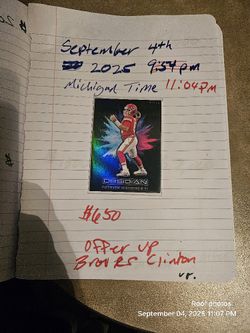 September 4th
2025 9:54pm
Michigan Time 11:04pm
OBSIDIAN
$650
Offer up
Clinton
Roof photos
September 04, 2025 11:07 PM